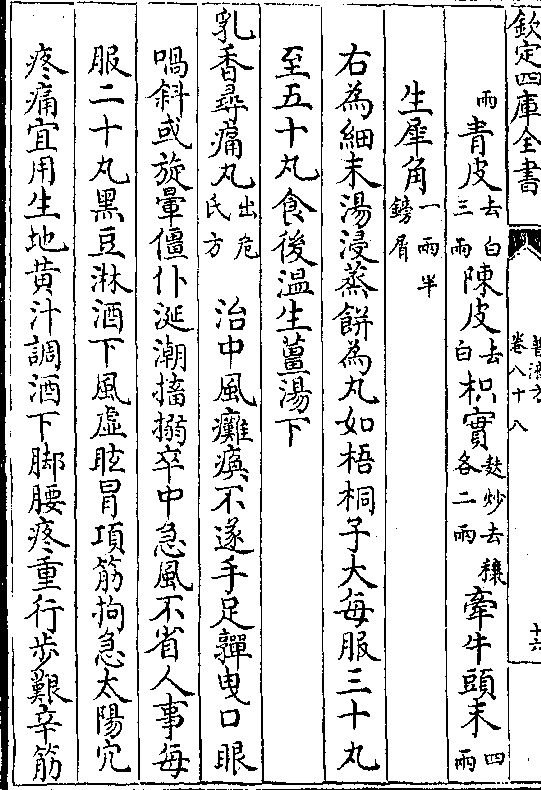 欽定四庫全書
普濟方
卷八十八
十六
兩青皮去白三兩陳皮去白枳實麩炒去穰各二兩牽牛頭末四兩
生犀角一兩半鎊屑
右為細末湯浸蒸餅為丸如梧桐子大每服三十丸
至五十丸食後溫生薑湯下
乳香尋痛丸出危氏方治中風癱瘓不遂手足嚲曳口眼
喎斜或旋暈僵仆涎潮搐搦卒中急風不省人事每
服二十丸黑豆淋酒下風虛眩冒項筋拘急太陽穴
疼痛宜用生地黄汁調酒下脚腰疼重行步艱辛筋